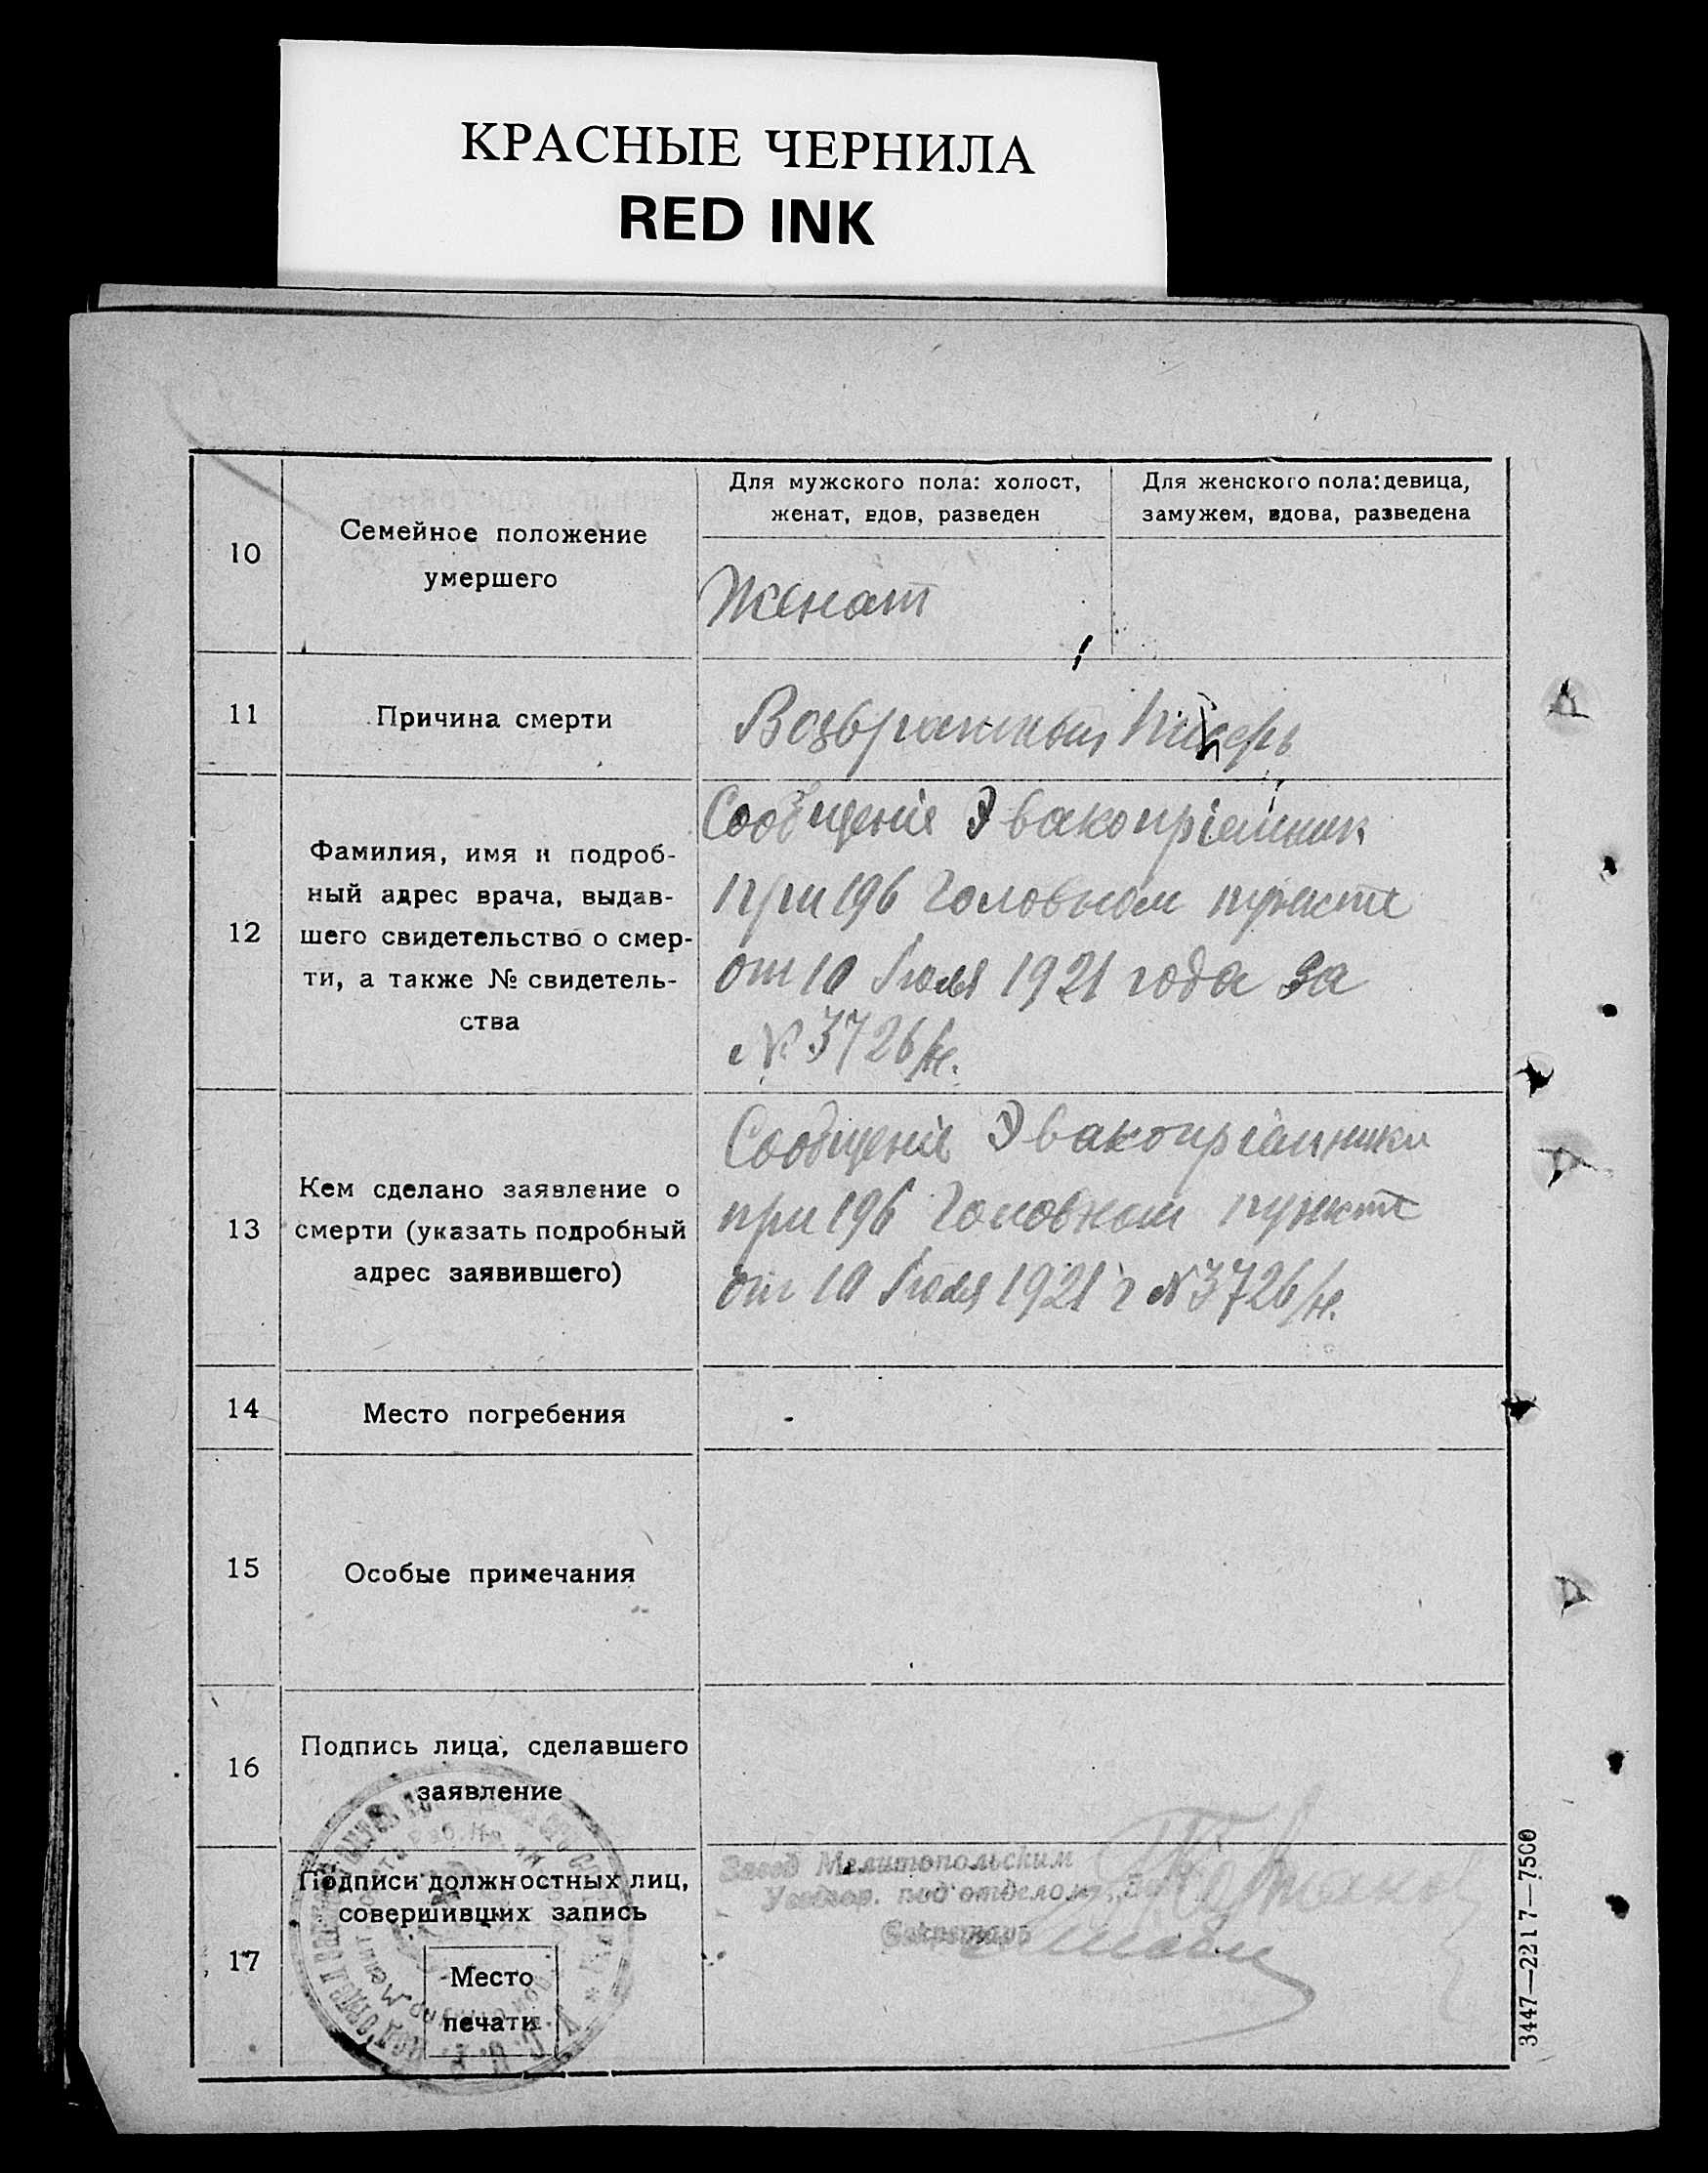 КРАСНЫЕ ЧЕРНИЛА
RED INK
10
Семейное положение
умершего
Для мужского пола: холост,
женат, вдов, разведен
Для женского пола: девица,
замужем, вдова, разведена
Женат
11
Причина смерти
Возвратный
12
Фамилия, имя и подроб-
ный адрес врача, выдав-
шего свидетельство о смер-
ти, а также № свидетель-
ства
Сообщенie Эвакопрiемник
при 196 Головном пункте
от 10 Iюля 1921 года за
№ 3726/н.
13
Кем сделано заявление о
смерти (указать подробный
адрес заявившего)
Сообщенie Эвакопрiемника
при 196 Головном пункте
от 10 Iюля 1921 г № 3726/н.
14
Место погребения
15
Особые примечания
16
Подпись лица, сделавшего
заявление
17
Подписи должностных лиц,
совершивших запись
Место
печати
Завед Мелитопольским
под'отделом
Секретарь
3447—2217—7500